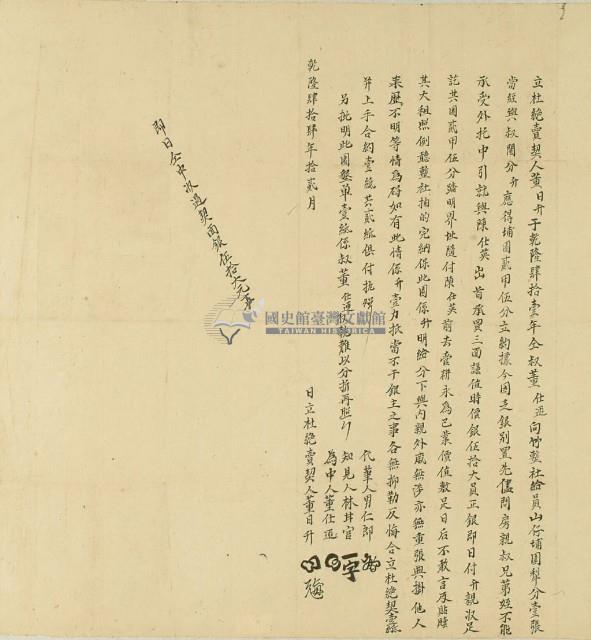 立杜絕賣契人董日升于乾隆肆拾壹年仝叔董仕逗向竹塹社給員山仔埔園犁分壹張
當經與叔鬮分升應得埔園貳甲伍分立約據今因乏銀別置先儘問房親叔兄弟姪不能
承受外托中引就與陳仕英出首承買三面議值時價銀伍拾大員正銀即日付升親收足
訖其園貳甲伍分踏明界址隨付陳仕英前去掌耕永為己業價值敷足日后不敢言及貼贖
其大租照例聽塹社抽的完納保此園係升明給分下與內親外戚無涉亦無重張典掛他人
來歷不明等情為碍如有此情係升壹力抵當不干銀主之事各無抑勒反悔合立杜絕契壹紙
并上手合約壹紙共貳紙俱付執炤
另批明此園墾單壹紙係叔董仕逗難以分折再照行
乾隆肆拾肆年拾貳月 日立杜絕賣契人董日升
代筆人男仁郎
知見人林井官
為中人董仕逗
即日仝中收過契面銀伍拾大元再
國史館臺灣文獻館
TAIWAN HISTORICA